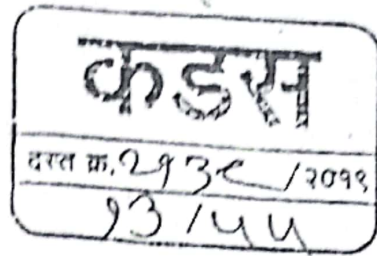 कडस
दस्त क्र. २१३८ / २०१९
१३ / ५५